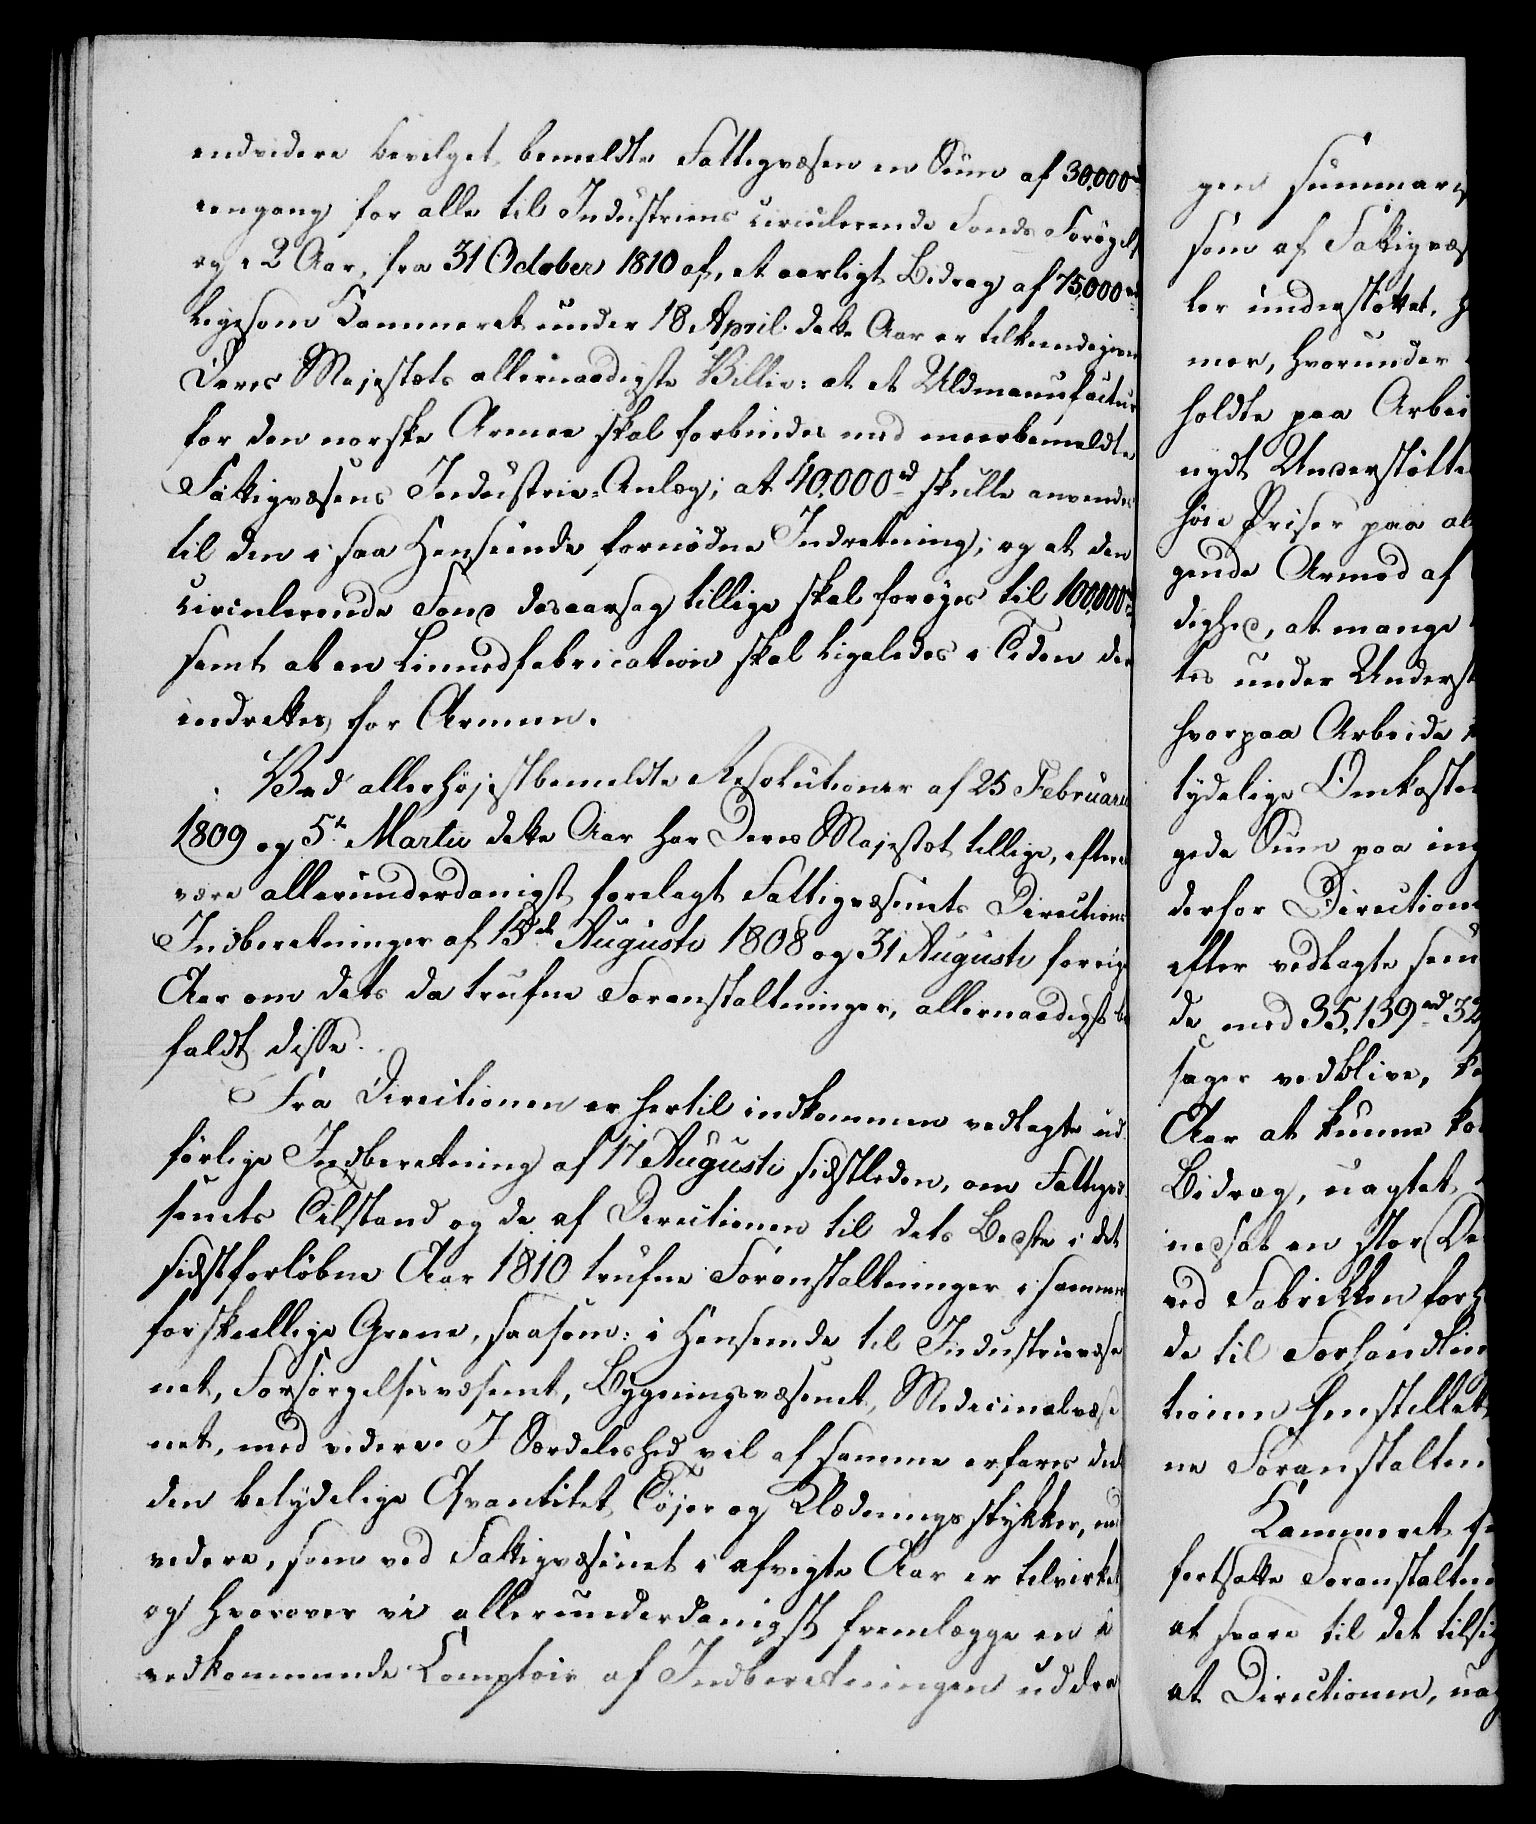 endvidere bevilget bemeldte Fattigvæsen en Sum af 30,000rd
eengang for alle til Industriens circulerende Fonds Forøgelse
og i 2 Aar, fra 31 October 1810 af, et aarligt Bidrag af 75,000rd
Ligesom Kammeret under 18 April dette Aar er tilkiendegiven
Deres Majestæts allernaadigste Villie: at et Uldmanufactur
for den norske Armee skal forbindes med meerbemeldte
Fattigvæsens Industrie-Anlæg; at 40,000rd skulle anvendes
til den i saa Henseende fornødne Indretning; og at den
circulerende Fond desaarsag tillige skal forøges til 100,000rd
samt at en Linnedfabrication skal ligeledes i Tiden der
indrettes for Armeen.
Ved allerhøjstbemeldte Resolutioner af 25 Februarii
1809 og 5te Martii dette Aar har Deres Majestæt tillige, efter at
være allerunderdanigst forelagt Fattigvæsenets Directions
Indberetninger af 15de Augusti 1808 og 31 Augusti forrige
Aar om dets da trufne Foranstaltninger, allernaadigst bi-
faldt disse.
Fra Directionen er hertil indkommen vedlagte ud-
førlige Indberetning af 17 Augusti sidstleden, om Fattigvæ-
senets Tilstand og de af Directionen til dets Bedste i det
sidstforløbne Aar 1810 trufne Foranstaltninger i sammes
forskiellige Grene, saasom: i Henseende til Industrievæse-
net, Forsørgelsesvæsenet, Bygningsvæsenet, Medicinalvæse-
net, med videre. I Særdeleshed vil af samme erfares den
den betydelige Qvantitet Tøjer og Klædningsstykker, med
videre, som ved Fattigvæsenet i afvigte Aar er tilvirket
og hvorover vi allerunderdanigst fremlægge en i
vedkommende Comptoir af Indberetningen uddra-
gen summarisk
som af Fattigvæs
ler understøttet, h
mer, hvorunder
holdte paa Arbei
nydt Understøtte
høie Priser paa al
gende Armod af
dighed, at mange
tes under Underst
hvorpaa Arbeide
tydelige Omkostn
gede Sum paa ing
derfor Direction
efter vedlagte sum
de med 35,139rd 32
sager vedblive, k
Aar at kunne ko
Bidrag, uagtet
nedsat en stor De
ved Fabrikken forh
de til Forhandlin
tionen henstillet
ne Foranstaltni
Kammeret
fortsatte Foranstaltni
at svare til det tilsi
at Directionen, uag